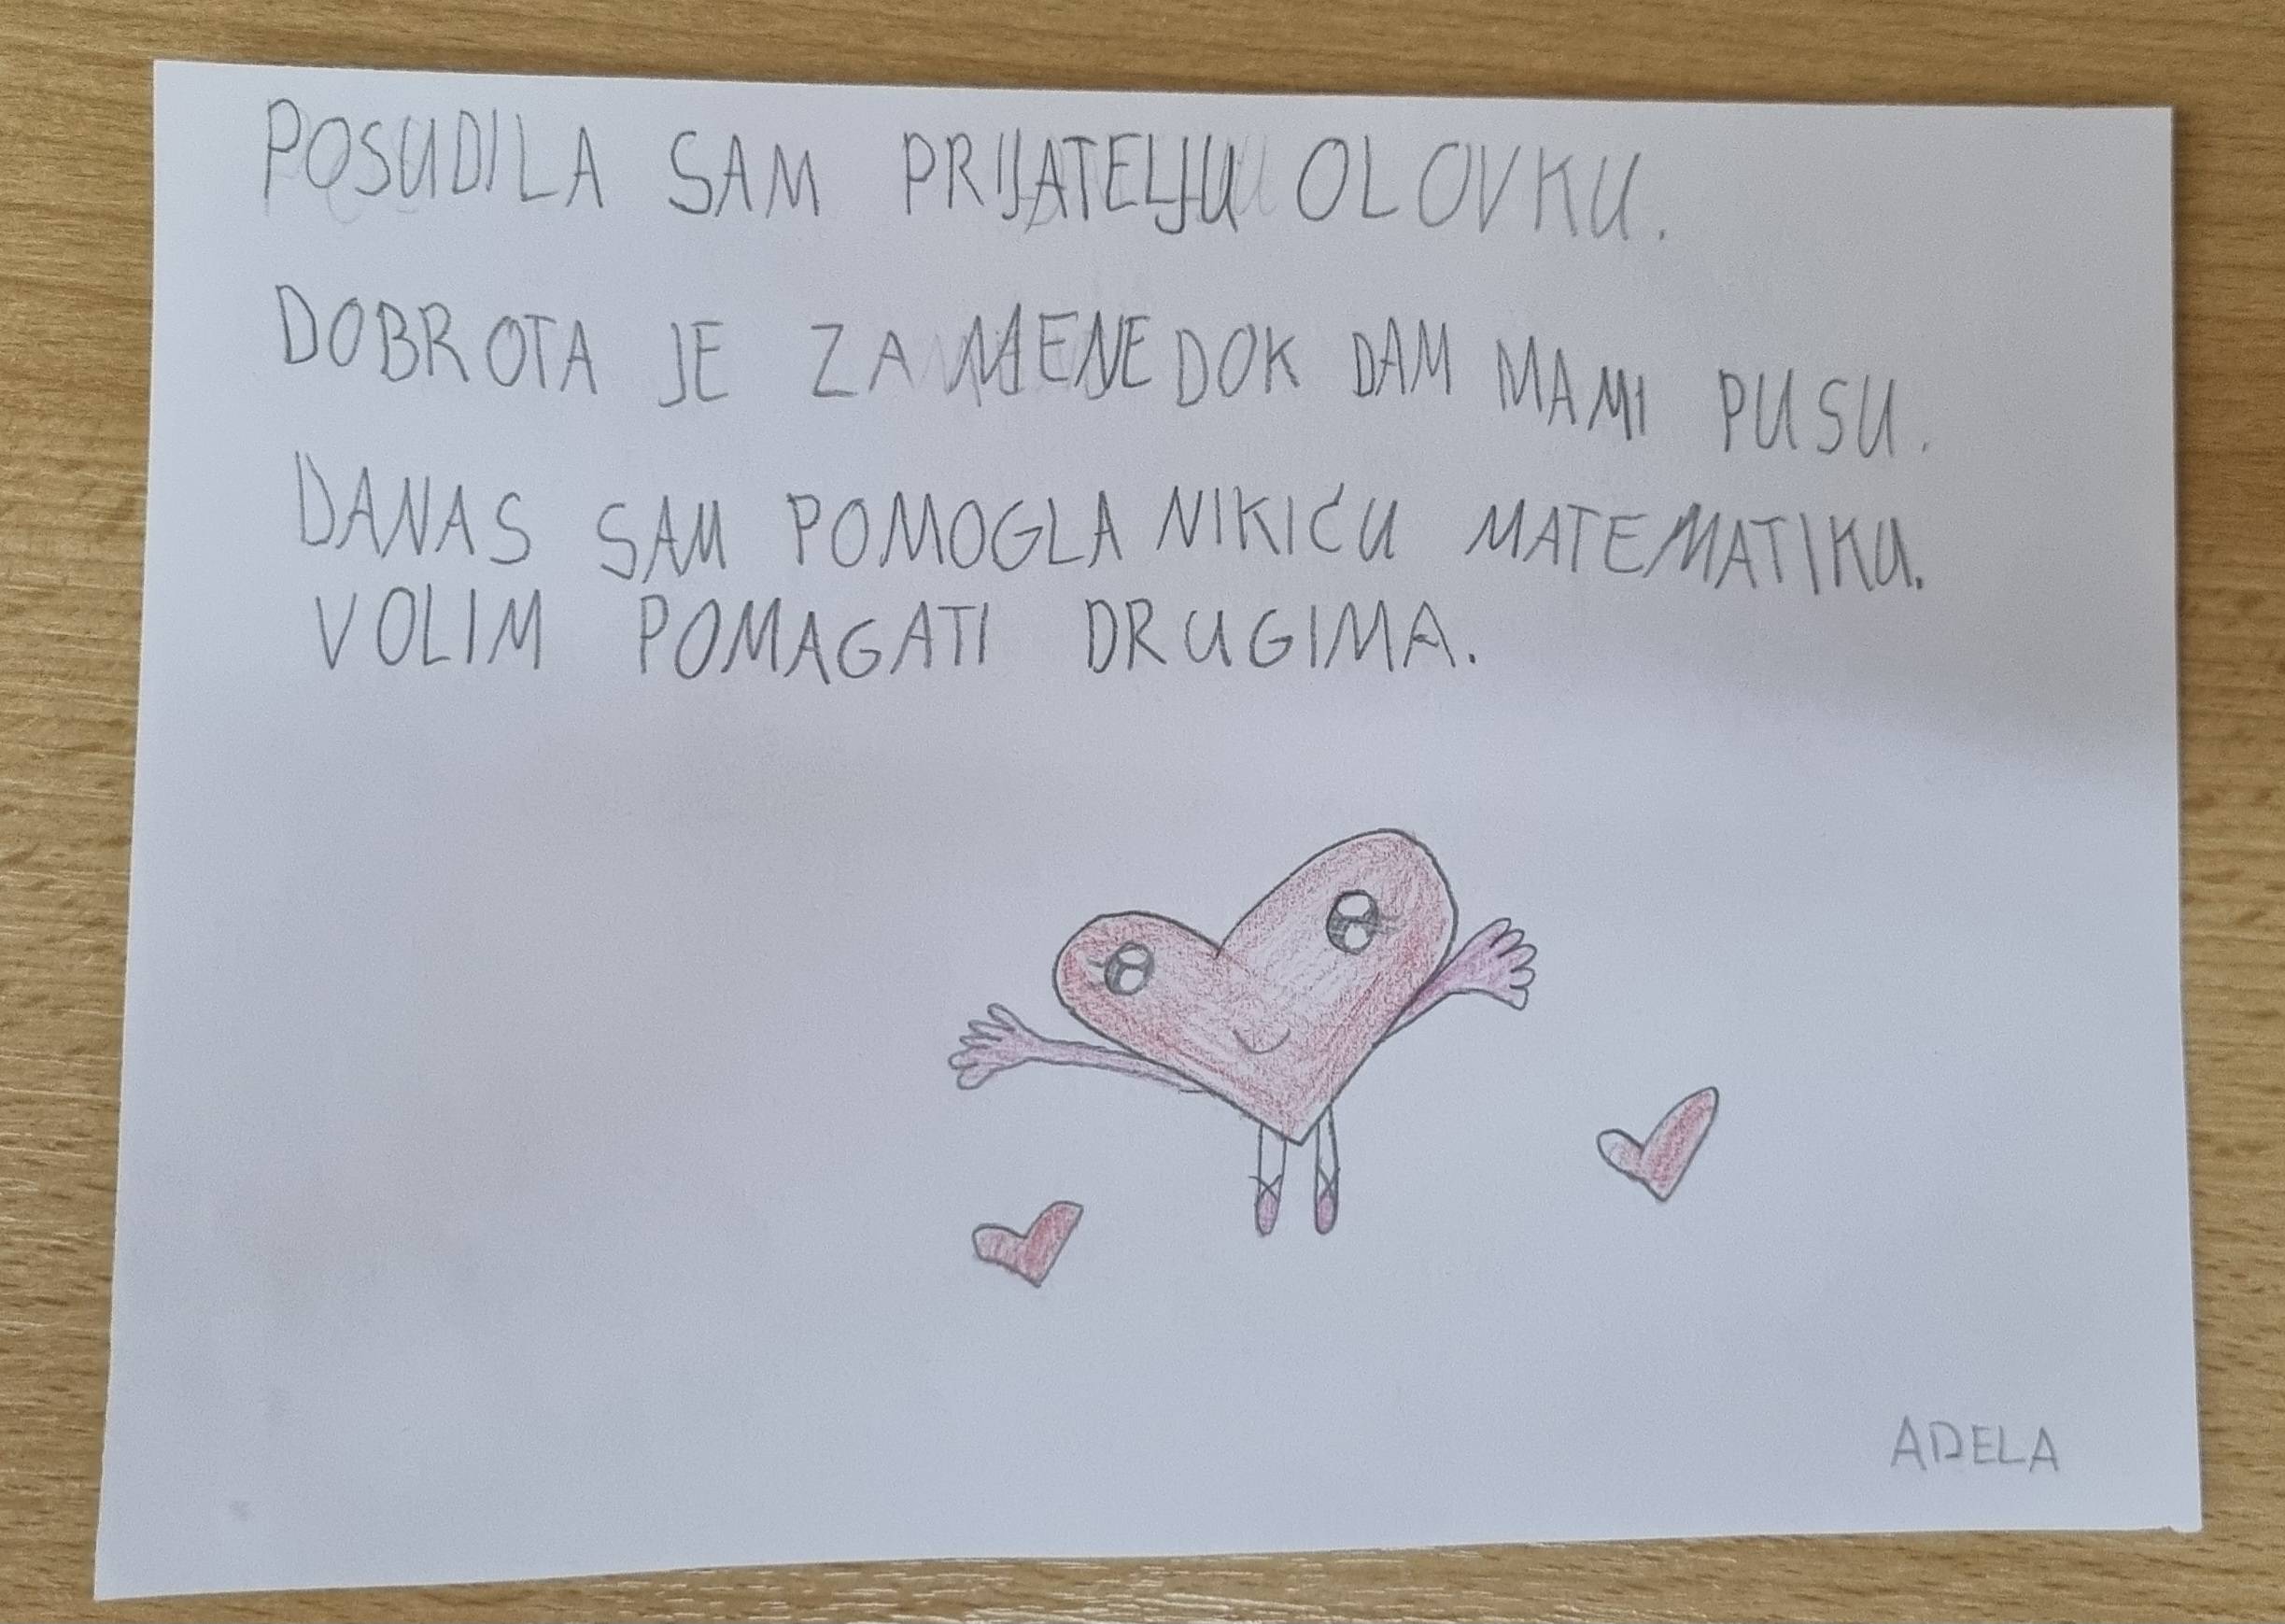 POSUDILA SAM PRIJATELJU OLOVKU.
DOBROTA JE ZA MENE DOK DAM MAMI PUSU.
DANAS SAM POMOGLA NIKIĆU MATEMATIKU.
VOLIM POMAGATI DRUGIMA.
ADELA